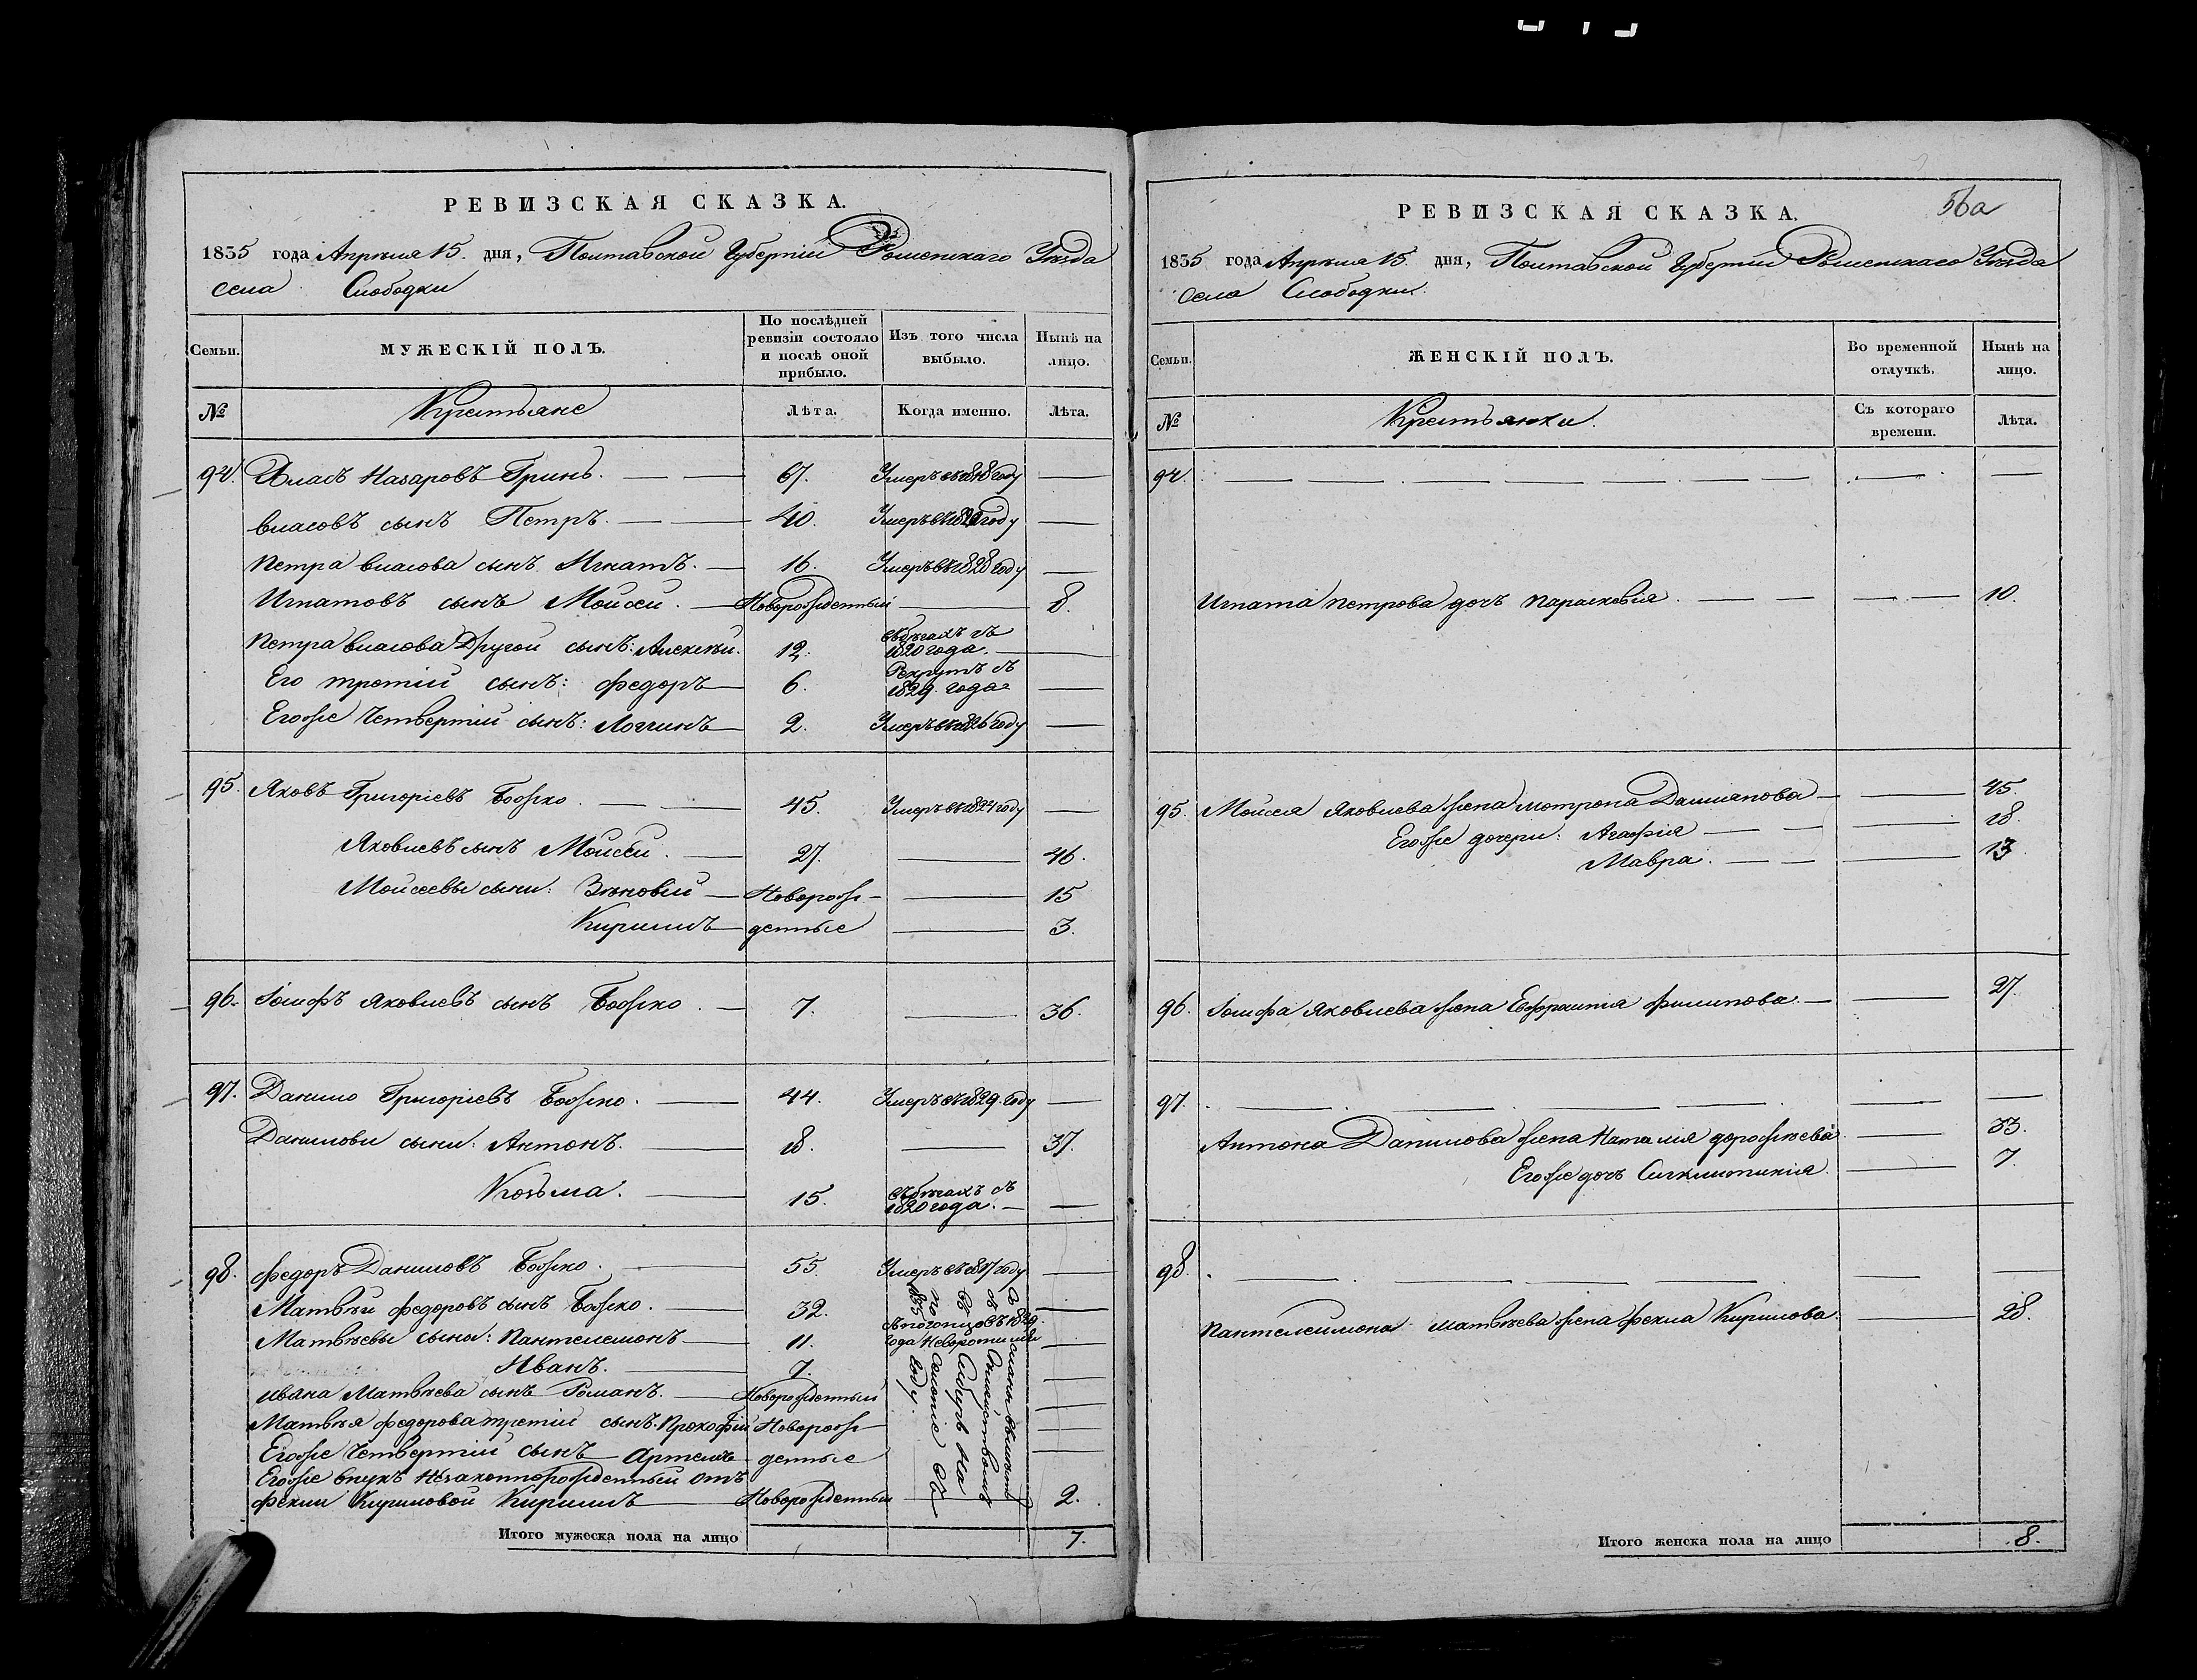 РЕВИЗСКАЯ СКАЗКА.
1835 года Апрѣля 15. дня, Полтавской Губерніи Роменскаго Уѣзда
села Слободки
Семьи.
МУЖЕСКІЙ ПОЛЪ.
По послѣдней ревизіи состояло и послѣ оной прибыло.
Изъ того числа выбыло.
Нынѣ на лицо.
№
Крестьяне
Лѣта.
Когда именно.
Лѣта.
94. Власъ Назаровъ Гринь. 67. Умеръ въ 1818 году
Власовъ сынъ Петръ. 40. Умеръ въ году
Петра Власова сынъ Игнатъ. 16. Умеръ въ 1828 году
Игнатовъ сынъ Моисей. Новорожденный 8.
Петра Власова Другой сынъ: Алексѣй. 12. въ бѣгахъ съ 1820 года.
Его третій сынъ: Федоръ 6. Рекрутъ съ 1829. года
Егоже Четвертій сынъ: Логгинъ 2. Умеръ въ 1826 году
95. Яковъ Григоріевъ Божко. 45. Умеръ въ 1824 году
Яковлевъ сынъ Моисей. 27. 46.
Моисеевы сыни: Зѣновій Новорож- 15
Кирилъ денные 3.
96. Іосифъ Яковлевъ сынъ Божко. 7. 36.
97. Данило Григоріевъ Божко. 44. Умеръ въ 1829. году
Данилови сыни: Антонъ. 18. 37.
Козьма. 15. въ бѣгахъ съ 1820 года.
98. Федоръ Даниловъ Божко. 55. Умеръ въ 1817 году
Матвѣй Федоровъ сынъ Божко. 32.
Матвѣевы сыны: Пантелемонъ 11.
Иванъ. 7.
Ивана Матвѣева сынъ Романъ. Новорожденный
Матвѣя Федорова третій сынъ: Прокофій Новорож-
Егоже Четвертій сынъ Артемъ денные
Егоже внукъ Незаконнорожденный отъ
Феклы Кириловой Кирилъ Новорожденный 2.
Сибирь на
поселеніе въ
году
Итого мужеска пола на лицо 7.
56а
РЕВИЗСКАЯ СКАЗКА.
1835 года Апрѣля 15. дня, Полтавской Губерніи Роменскаго Уѣзда
села Слободки.
Семьи.
ЖЕНСКІЙ ПОЛЪ.
Во временной отлучкѣ.
Нынѣ на лицо.
№
Крестьянки.
Съ котораго времени.
Лѣта.
94.
Игната Петрова дочь Параскевія. 10.
95. Моисея Яковлева жена Мотрона Даміанова 45.
Егоже дочери: Агафія 18.
Мавра. 13.
96. Іосифа Яковлева жена Евфросинія Филипова. 27.
97.
Антона Данилова жена Наталія Дорофѣева 33.
Егоже дочь 7.
98.
Пантелеймона Матвѣева жена Фекла Кирилова. 28.
Итого женска пола на лицо 8.